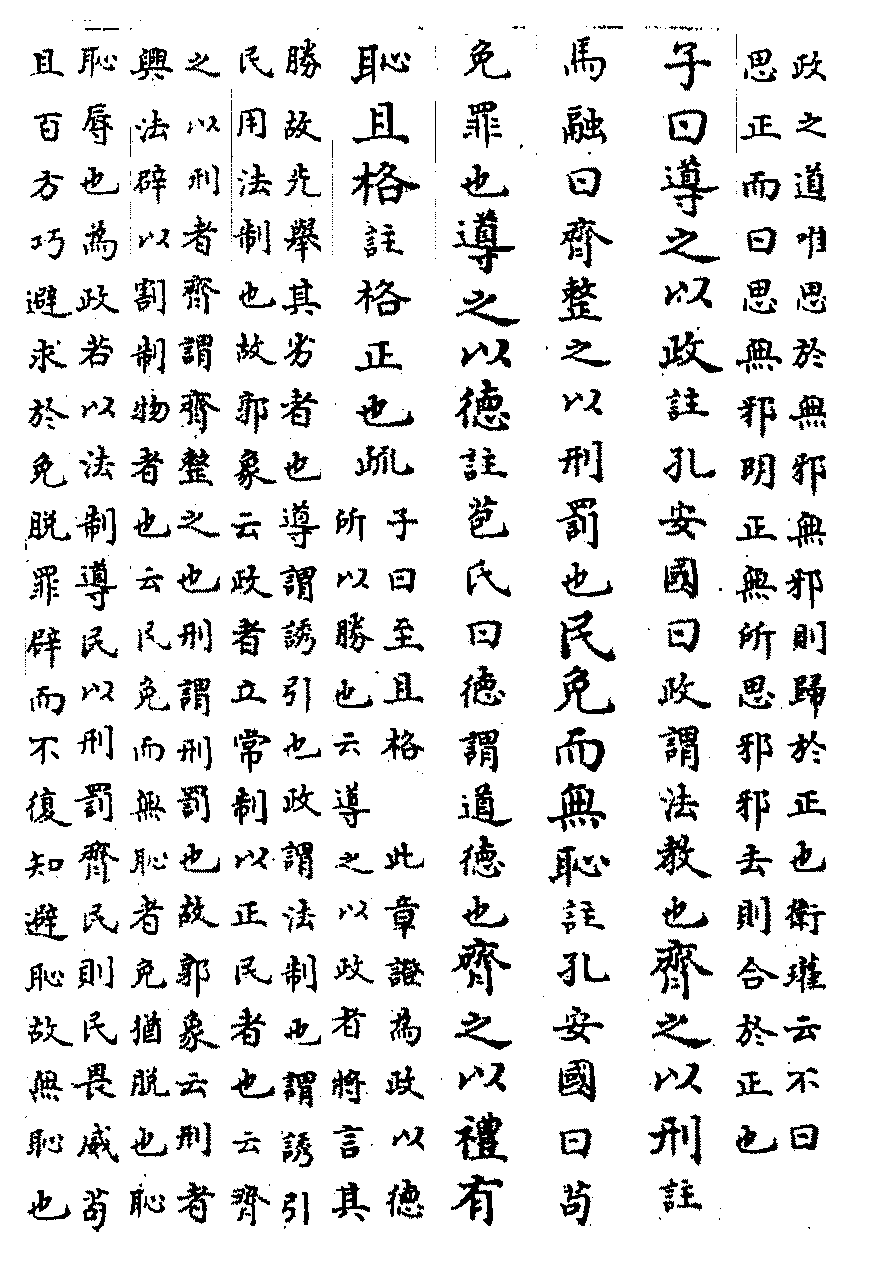 政之道唯思於無邪無邪則歸於正也衛瓘云不曰
思正而曰思無邪明正無所思邪邪去則合於正也
子曰導之以政註孔安國曰政謂法教也齊之以刑註
馬融曰齊整之以刑罰也民免而無恥註孔安國曰苟
免罪也導之以德註苞氏曰德謂道德也齊之以禮有
恥且格註格正也疏
子曰至且格 此章證為政以德
所以勝也云導之以政者將言其
勝故先舉其劣者也導謂誘引也政謂法制也謂誘引
民用法制也故郭象云政者立常制以正民者也云齊
之以刑者齊謂齊整之也刑謂刑罰也故郭象云刑者
興法辟以割制物者也云民免而無恥者免猶脫也恥
恥辱也為政若以法制導民以刑罰齊民則民畏威苟
且百方巧避求於免脫罪辟而不復知避恥故無恥也